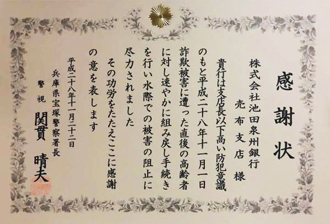 感謝状
株式会社池田泉州銀行
売布支店 様
貴行は支店長以下高い防犯意識
のもと平成二十八年十一月一日
詐欺被害に遭った直後の高齢者
に対し速やかに組み戻し手続き
を行い水際での被害の阻止に
尽力されました
その功労をたたえここに感謝
の意を表します
平成二十八年十一月二十二日
兵庫県宝塚警察署長
警視 関貫 晴夫